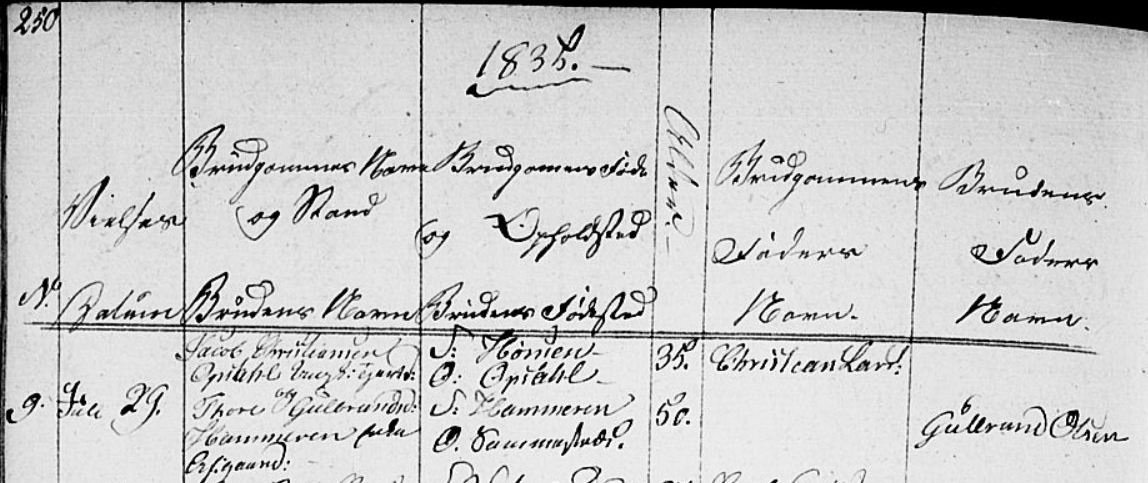 250
1835.
Vielses
Datum
No.
Brudgommes Navn
og Stand
Brudens Navn
Brudgomens Føde
og Opholdsted
Brudens Fødested
Alder.
Brudgommens
Faders
Navn.
Brudens
Faders
Navn.
9. Juli 29.
Jacob Christiansen
Opsahl
Thore Gulbrandsd:
Hammeren
F: Homen
O: Opsahl
F: Hammeren
O. Sammesteds.
35.
50.
Christian Lars:
Gulbrand Olsen